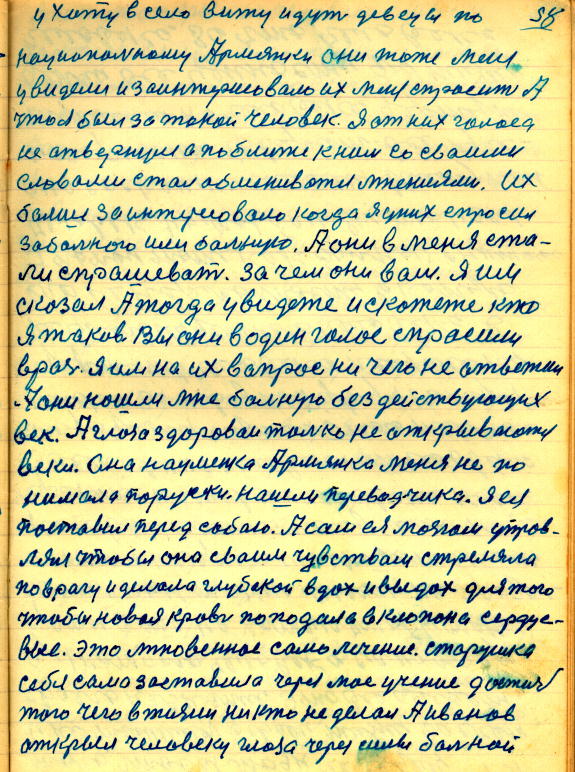 ухожу в село вижу идут девецы по 58
национальному Армянки они тоже меня
увидели и заинтересовало их меня спросить А
что я был за такой человек. Я от них голоса
не отвернул а поближе к ним со своими
словами стал обмениватся мнениями. Их
больше заинтересовало когда я у них спросил
за больного или больную. А они в меня ста-
ли спрашеват. Зачем они вам. Я им
сказал А тогда увидете и скажете кто
я таков. Вы они в один голос спросили
врач. Я им на их вапрос ни чего не ответил
А они нашли мне больную без действующих
век. А глаза здороваи только не открываются
веки. Она науменка Армянка меня не по
нимала поруски. нашли переводчика. Я ея
поставил перед собаю. А сам ея мозгом управ-
лял чтобы она своим чувствам стреляла
по врагу и делала глубокой вдох и выдох для того
чтобы новая кровь поподала в клопона сердце-
вые. Это мгновенное само лечение. старушка
себя сама заставила через мое учение достич
того чего в жизни никто не делал А Иванов
открыл человеку глоза через силы больной